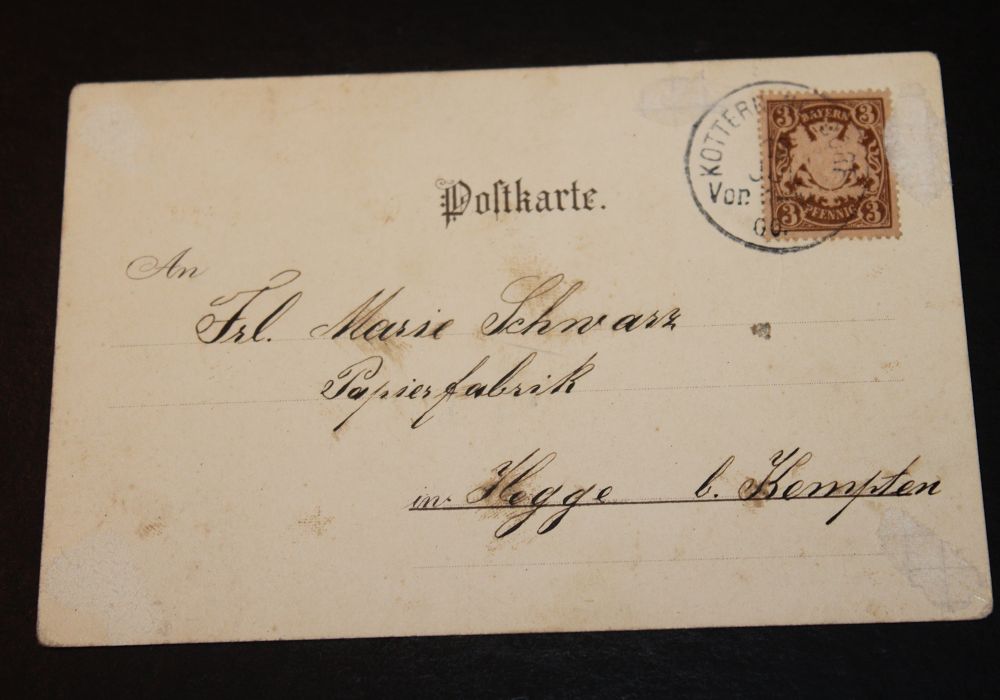 Postkarte.
3 BAYERN 3
3 PFENNIG 3
Vor
An
Frl. Marie Schwarz
Papierfabrik
in Hegge b. Kempten